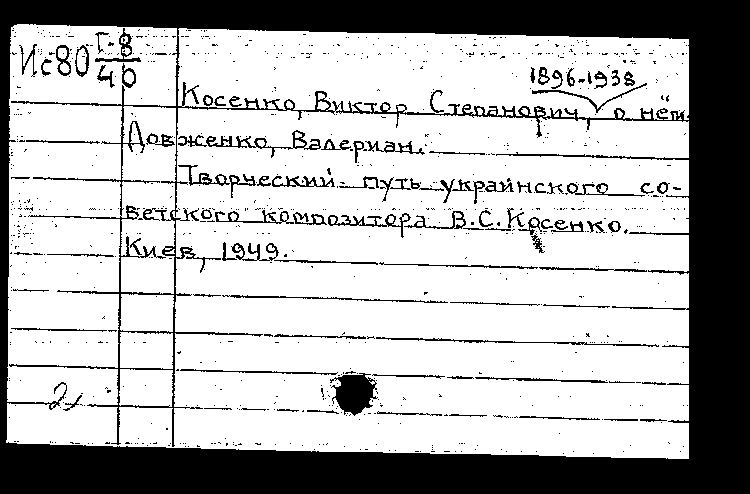 Ис80 Г-8
40
1896-1938
Косенко, Виктор Степанович, о нём.
Довженко, Валериан.
Творческий путь украинского со-
ветского композитора В.С.Косенко.
Киев, 1949.